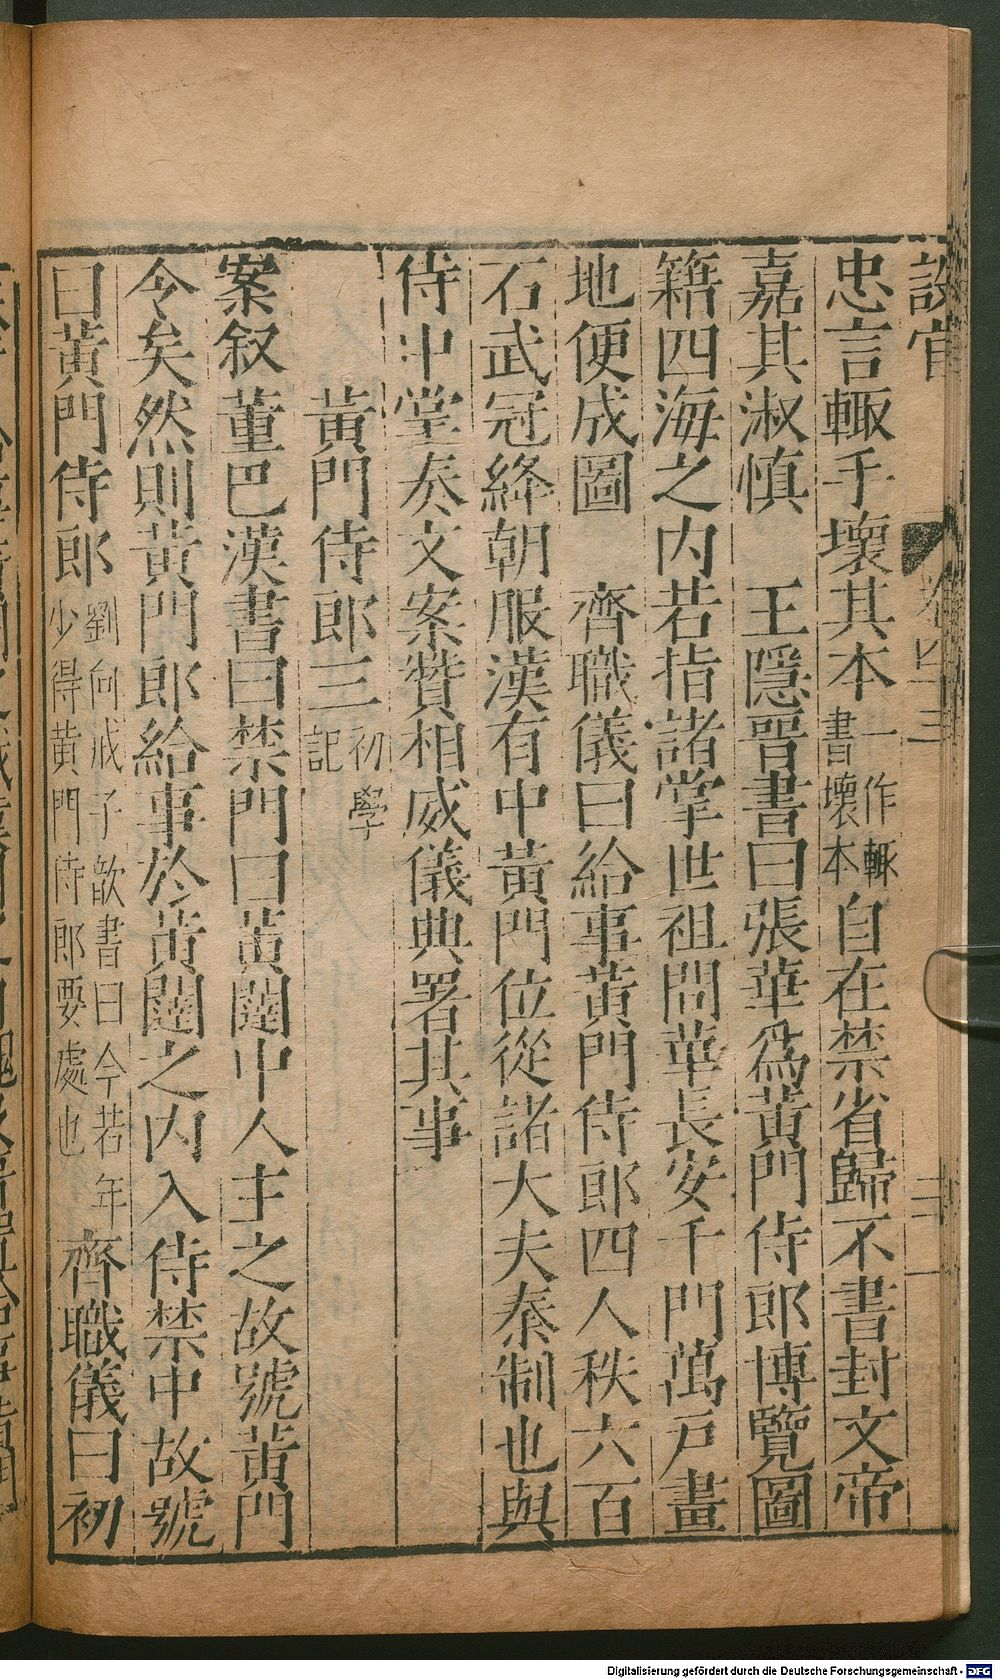 設官
卷四 三
三
忠言輙手壞其本一作輙書壞本自在禁省歸不書封文帝
嘉其淑慎　王隱晋書曰張華爲黄門侍郎博覽圖
籍四海之内若指諸掌世祖問華長安千門萬戸畫
地便成圖　齊職儀曰給事黄門侍郎四人秩六百
石武冠絳朝服漢有中黄門位從諸大夫秦制也與
侍中掌奏文案贊相威儀典署其事
黄門侍郎三初學記
案叙董巴漢書曰禁門曰黄闥中人主之故號黄門
令矣然則黄門郎給事於黄闥之内入侍禁中故號
曰黄門侍郎劉向戒子歆書曰今若年少得黄門侍郎要處也齊職儀曰初
Digitalisierung gefördert durch die Deutsche Forschungsgemeinschaft - DFG